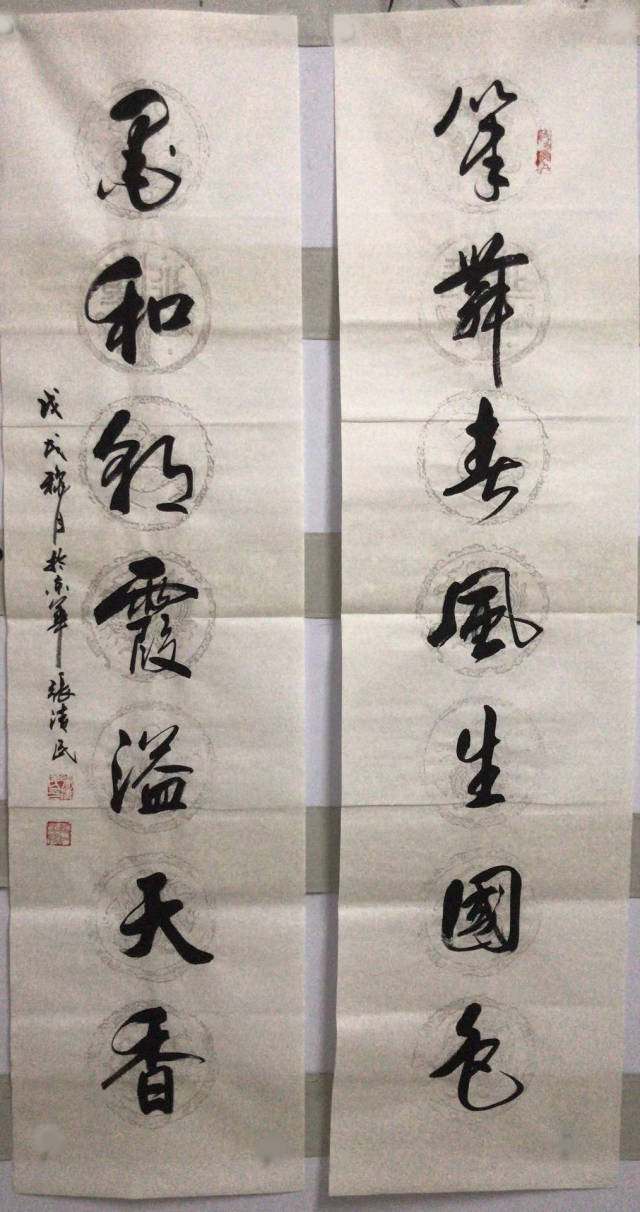 筆舞春風生國色
墨和彩霞溢天香
戊戌月於京華張清民